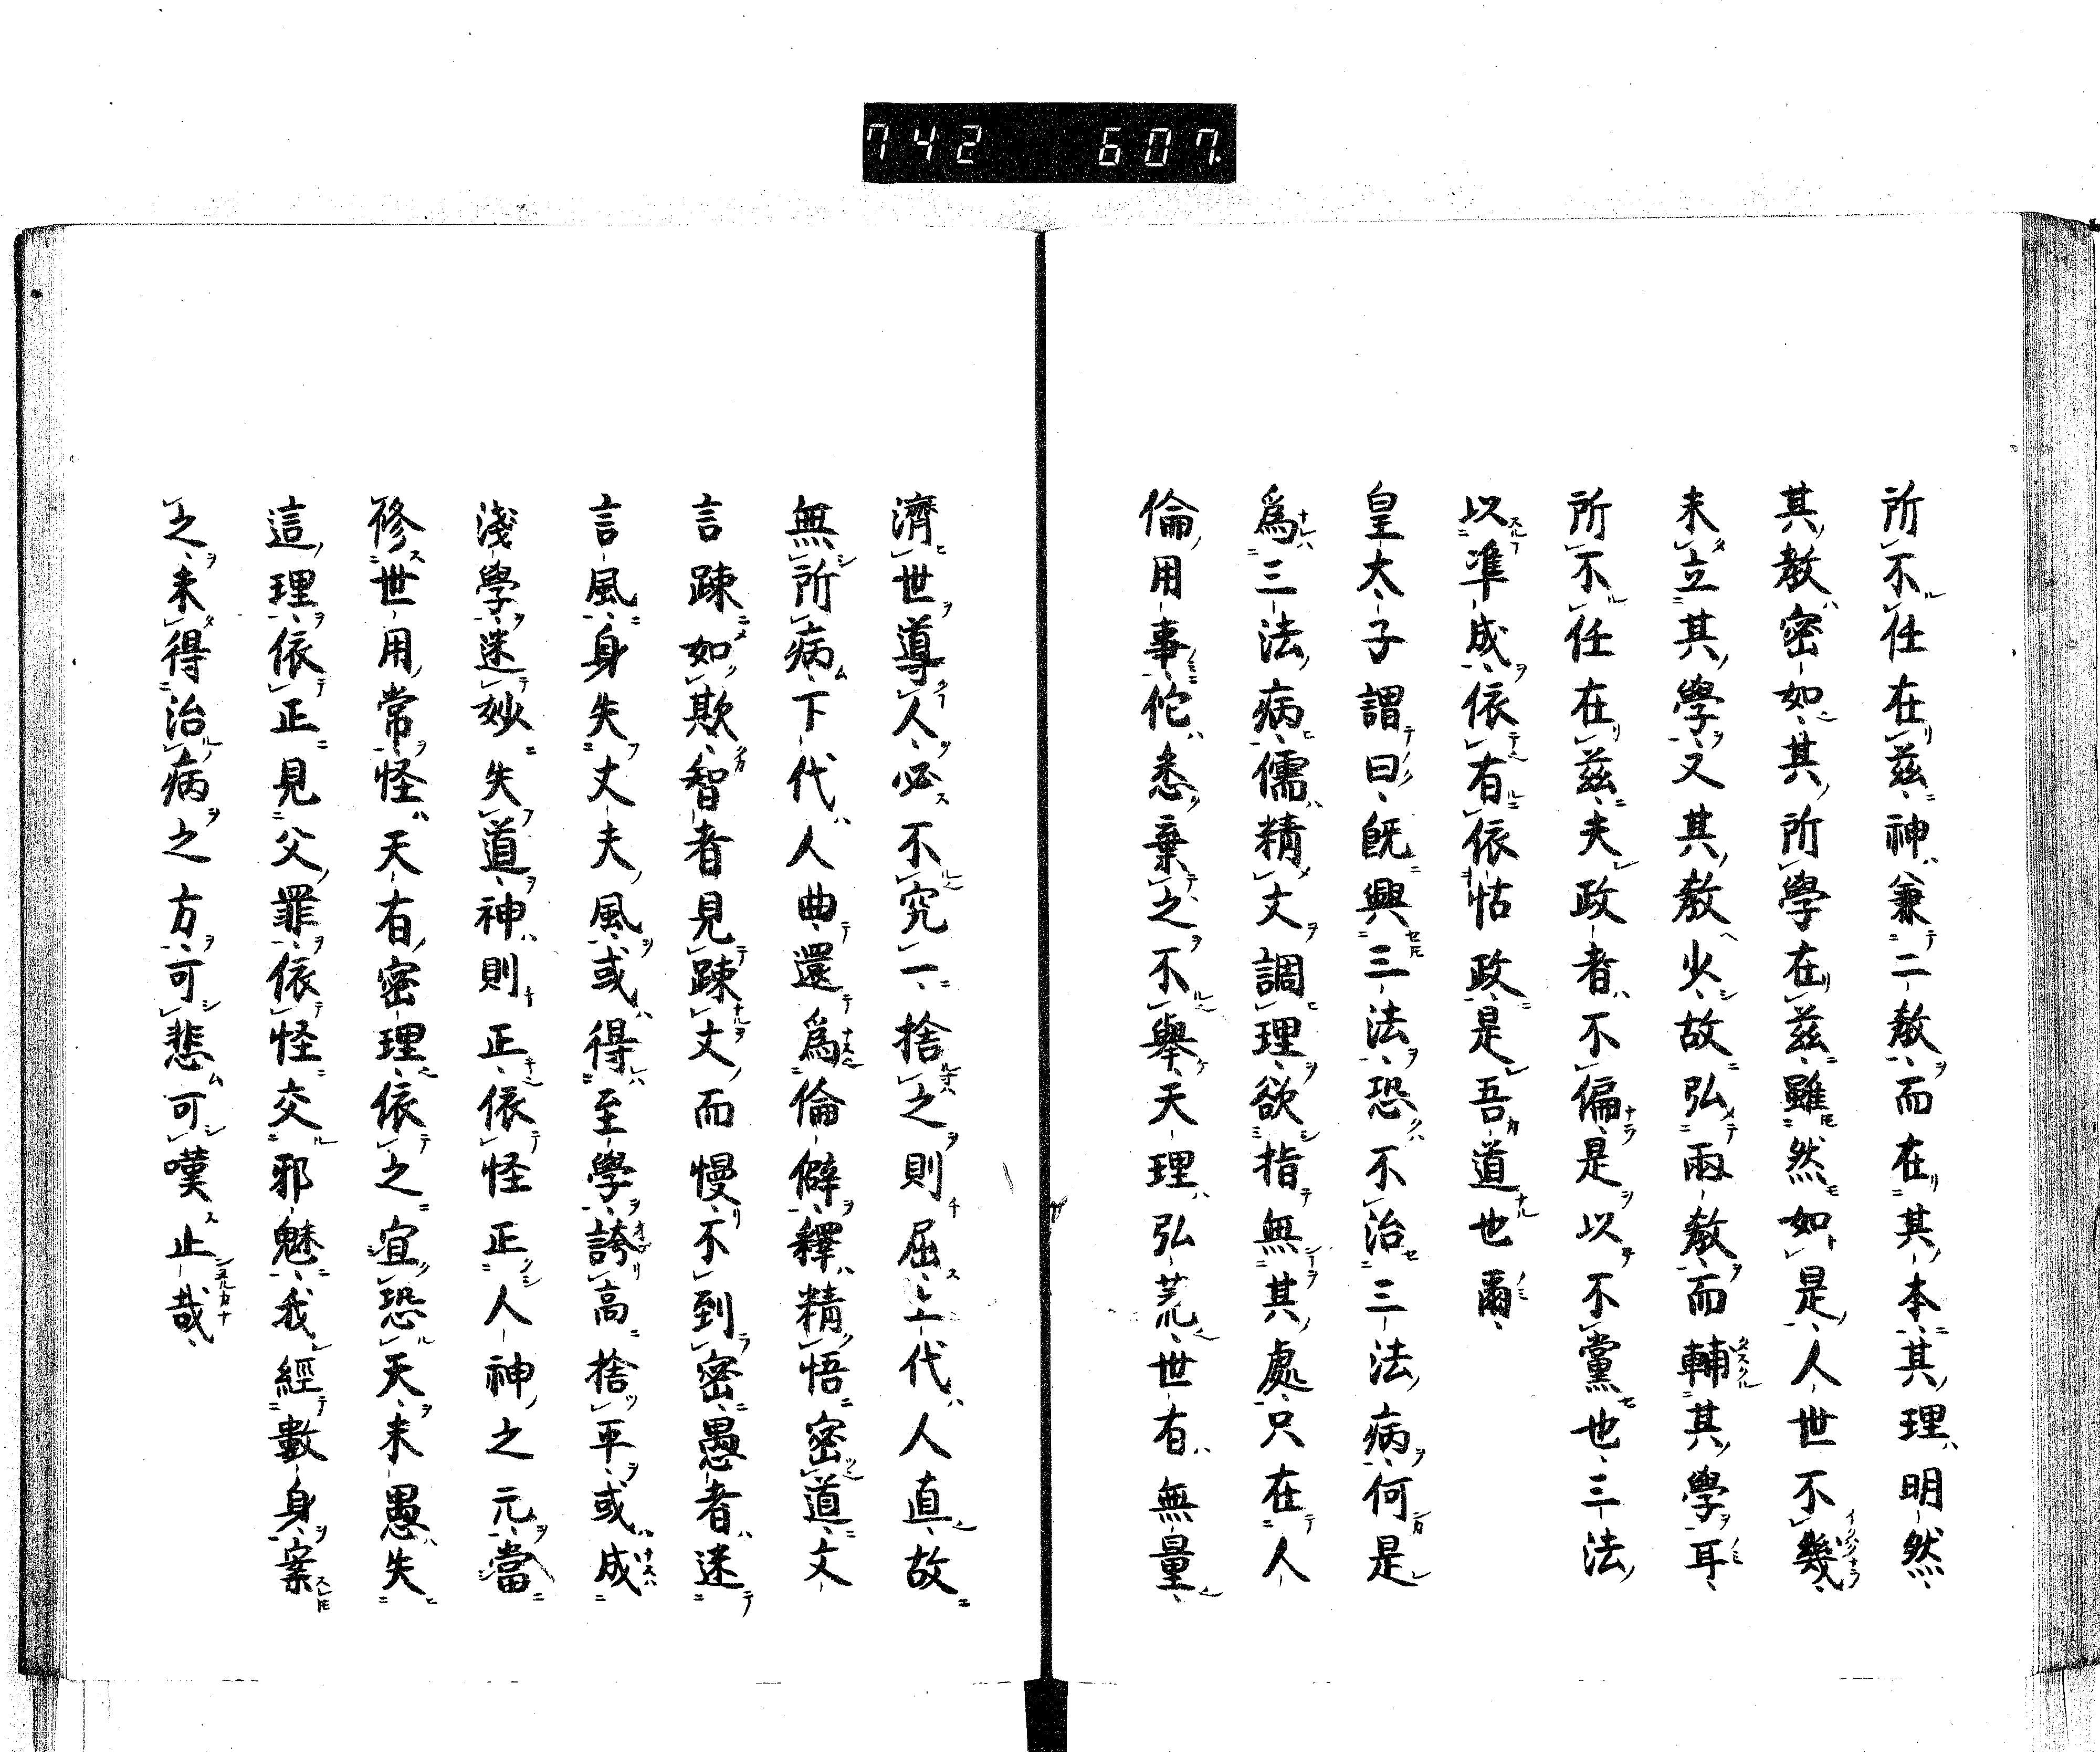 742 607.
所不任在茲神兼二教而在其本其理明然
其教密如其所學在茲雖然如是人世不幾
未立其學又其教少故弘兩教而輔其學耳
所不任在茲夫政者不偏是以不黨也三法
以準成依有依怙政是吾道也爾
皇太子謂曰既興三法恐不治三法病何是
爲三法病儒精丈調理欲指無其處只在人
倫用事佗悉棄之不舉天理弘荒世有無量
濟世導人必不究一捨之則屈上代人直故
無所病下代人曲還爲倫僻釋精悟密道文
言踈如欺智者見踈丈而慢不到密愚者迷
言風身失丈夫風或得至學誇高捨平或成
淺學迷妙失道神則正依怪正人神之元當
修世用常怪天有密理依之宜恐天未愚失
這理依正見父罪依怪交邪魅我經數身案
之未得治病之方可悲可嘆止哉